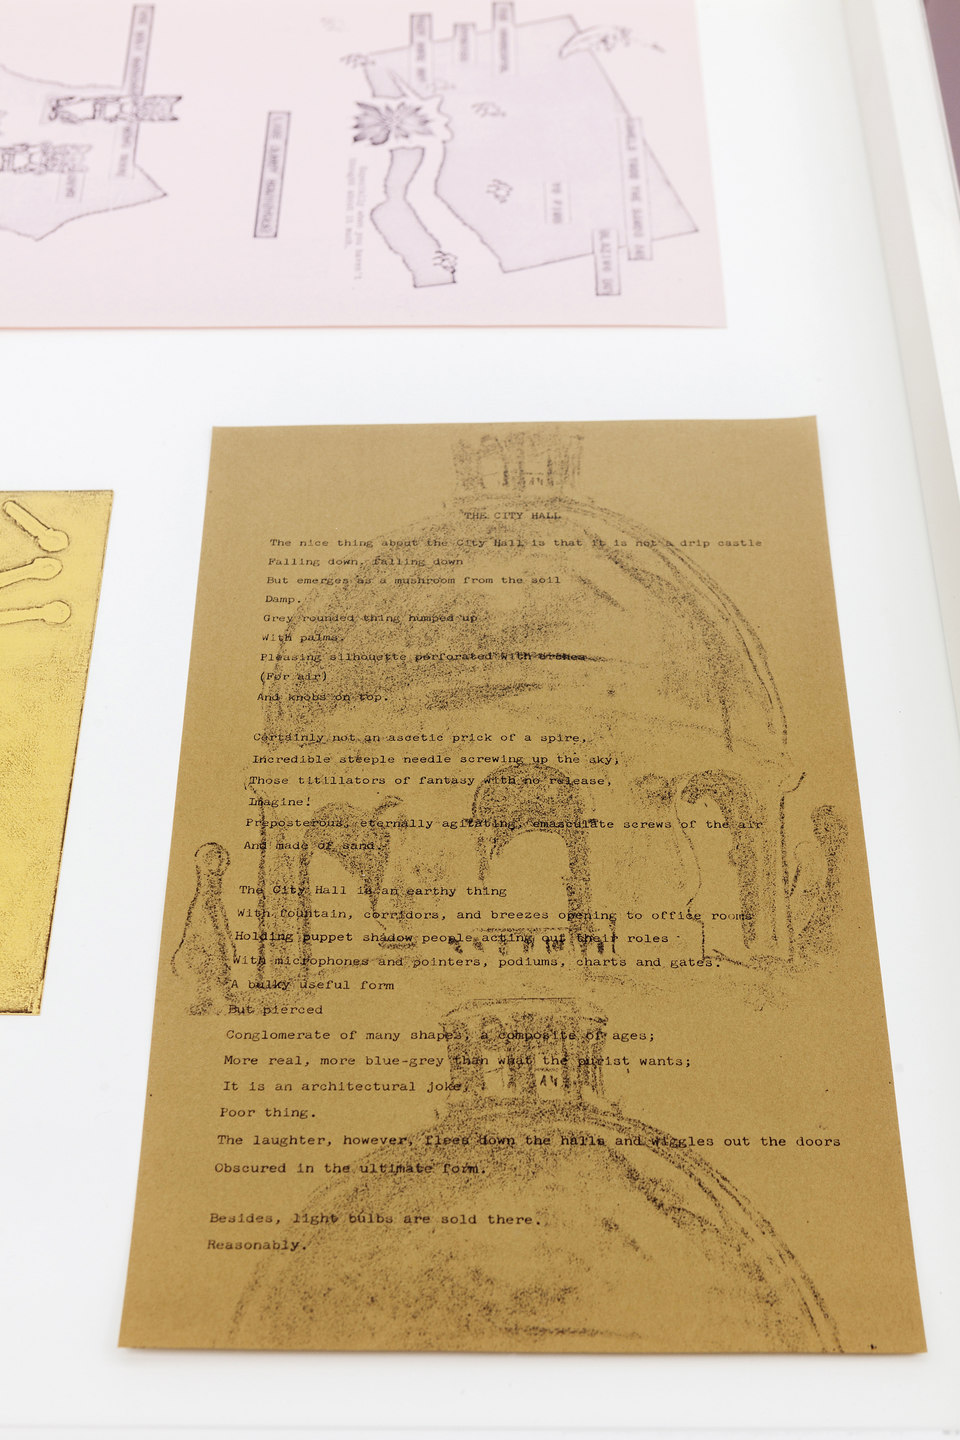 THE CITY HALL
The nice thing about the City Hall is that it is not a drip castle
Falling down, falling down
But emerges as a mushroom from the soil
Damp.
Grey rounded thing humped up
With palms.
Pleasing silhouette perforated with
(For air)
And knobs on top.
Certainly not an ascetic prick of a spire,
Incredible steeple needle screwing up the sky;
Those titillators of fantasy with no release,
Imagine!
Preposterous, eternally agitating, emasculate screws of the air
And made of sand.
The City Hall is an earthy thing
With fountain, corridors, and breezes opening to office rooms
Holding puppet shadow people acting out their roles
With microphones and pointers, podiums, charts and gates.
A bulky useful form
But pierced
Conglomerate of many shapes, a composite of ages;
More real, more blue-grey than what the purist wants;
It is an architectural joke,
Poor thing.
The laughter, however, flees down the halls and wiggles out the doors
Obscured in the ultimate form.
Besides, light bulbs are sold there.
Reasonably.